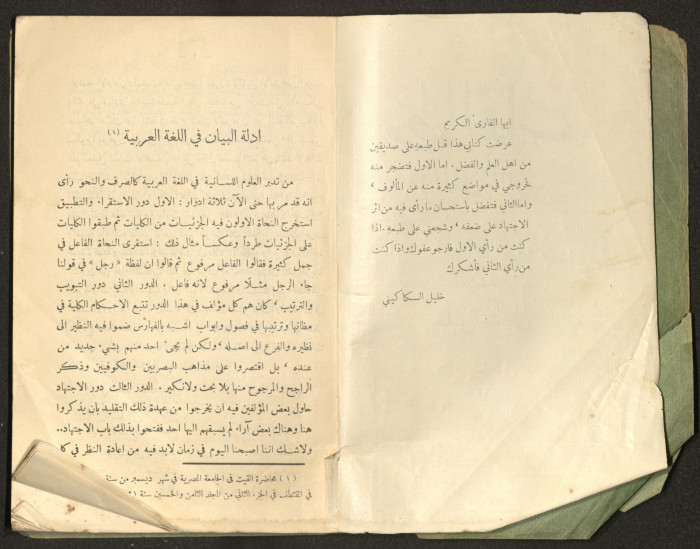 ايها القارئ الكريم
عرضت كتابي هذا قبل طبعه على صديقين
من اهل العلم والفضل . اما الاول فتضجر منه
لخروجي في مواضع كثيرة منه عن المألوف ،
واما الثاني فتفضل باستحسان ما رأى فيه من اثر
الاجتهاد على ضعفه ، وشجعني على طبعه . اذا
كنت من رأي الاول فارجو عفوك واذا كنت
من رأي الثاني فأشكرك
خليل السكاكيني
ادلة البيان في اللغة العربية (١)
من تدبر العلوم اللسانية في اللغة العربية كالصرف والنحو رأى
انه قد مر بها حتى الآن ثلاثة ادوار : الاول دور الاستقراء والتطبيق
استخرج النحاة الاولون فيه الجزئيات من الكليات ثم طبقوا الكليات
على الجزئيات طرداً وعكساً مثال ذلك : استقرى النحاة الفاعل في
جمل كثيرة فقالوا الفاعل مرفوع ثم قالوا ان لفظة « رجل » في قولنا
جاء الرجل مثلاً مرفوع لانه فاعل . الدور الثاني دور التبويب
والترتيب ، كان هم كل مؤلف في هذا الدور تتبع الاحكام الكلية في
مظانها وترتيبها في فصول وابواب اشبه بالفهارس ضموا فيه النظير الى
نظيره والفرع الى اصله ، ولكن لم يجئ احد منهم بشيء جديد من
عنده ، بل اقتصروا على مذاهب البصريين والكوفيين وذكر
الراجح والمرجوح منها بلا بحث ولا نكير . الدور الثالث دور الاجتهاد
حاول بعض المؤلفين فيه ان يخرجوا من عهدة ذلك التقليد بان يذكروا
هنا وهناك بعض آراء لم يسبقهم اليها احد ففتحوا بذلك باب الاجتهاد..
ولاشك اننا اصبحنا اليوم في زمان لابد فيه من اعادة النظر في
(١) محاضرة القيت في الجامعة المصرية في شهر ديسمبر من سنة
في المقتطف في الجزء الثاني من المجلد الثامن والخمسين سنة